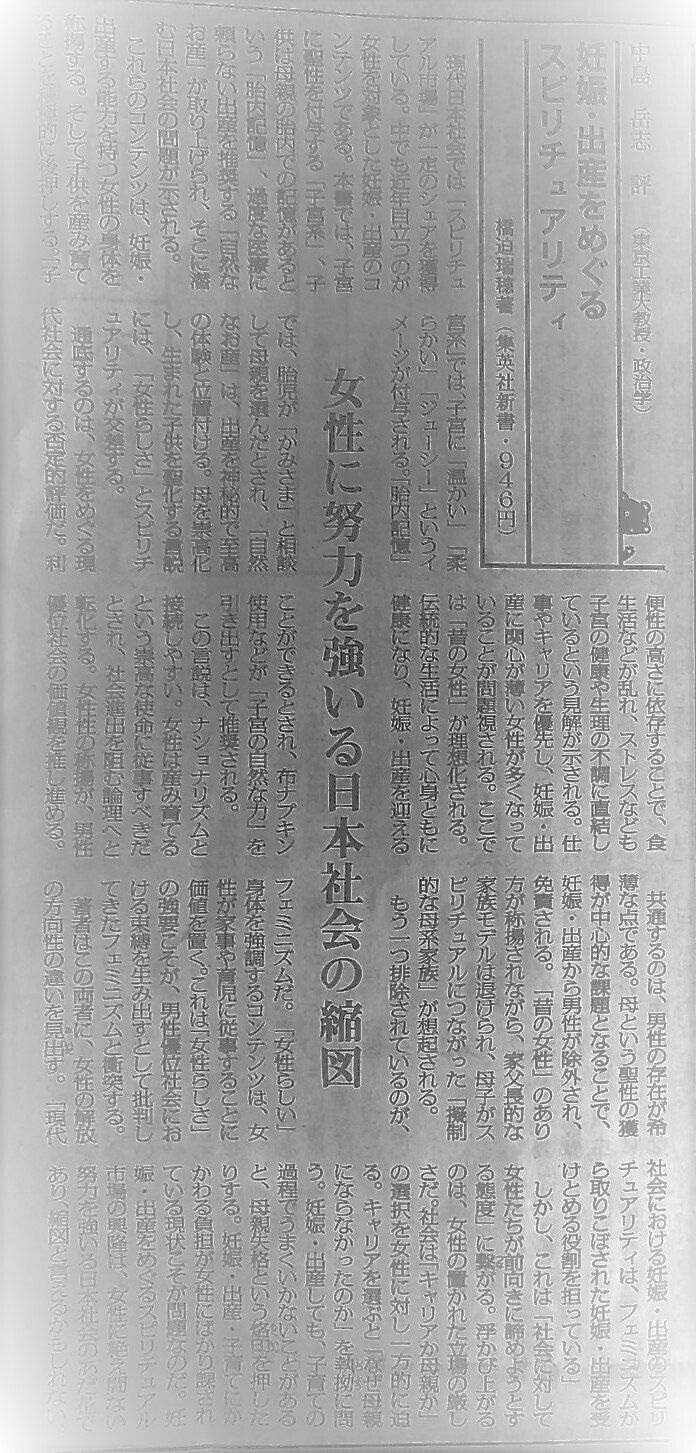 中島 岳志 評 (東京工業大教授・政治学)
妊娠・出産をめぐる
スピリチュアリティ
橋迫瑞穂著(集英社新書・946円)
女性に努力を強いる日本社会の縮図
現代日本社会では「スピリチュ
アル市場」が一定のシェアを獲得
している。中でも近年目立つのが
女性を対象とした妊娠・出産のコ
ンテンツである。本書では、子宮
に聖性を付与する「子宮系」、子
供は母親の胎内での記憶があると
いう「胎内記憶」、過度な医療に
頼らない出産を推奨する「自然な
お産」が取り上げられ、そこに潜
む日本社会の問題が示される。
これらのコンテンツは、妊娠・
出産する能力を持つ女性の身体を
称揚する。そして子供を産み育て
ることを積極的に後押しする。「子
宮系」では、子宮に「温かい」「柔
らかい」「ジューシー」というイ
メージが付与される。「胎内記憶」
では、胎児が「かみさま」と相談
して母親を選んだとされ、「自然
なお産」は、出産を神秘的で至高
の体験と位置付ける。母を崇高化
し、生まれた子供を聖化する言説
には、「女性らしさ」とスピリチ
ュアリティが交差する。
通底するのは、女性をめぐる現
代社会に対する否定的評価だ。利
便性の高さに依存することで、食
生活などが乱れ、ストレスなども
子宮の健康や生理の不調に直結し
ているという見解が示される。仕
事やキャリアを優先し、妊娠・出
産に関心が薄い女性が多くなって
いることが問題視される。ここで
は「昔の女性」が理想化される。
伝統的な生活によって心身ともに
健康になり、妊娠・出産を迎える
ことができるとされ、布ナプキン
使用などが「子宮の自然な力」を
引き出すとして推奨される。
この言説は、ナショナリズムと
接続しやすい。女性は産み育てる
という崇高な使命に従事すべきだ
とされ、社会進出を阻む論理へと
転化する。女性性の称揚が、男性
優位社会の価値観を推し進める。
共通するのは、男性の存在が希
薄な点である。母という聖性の獲
得が中心的な課題となることで、
妊娠・出産から男性が除外され、
免責される。「昔の女性」のあり
方が称揚されながら、家父長的な
家族モデルは退けられ、母子がス
ピリチュアルにつながった「擬制
的な母系家族」が想起される。
もう一つ排除されているのが、
フェミニズムだ。「女性らしい」
身体を強調するコンテンツは、女
性が家事や育児に従事することに
価値を置く。これは「女性らしさ」
の強要こそが、男性優位社会にお
ける束縛を生み出すとして批判し
てきたフェミニズムと衝突する。
著者はこの両者に、女性の解放
の方向性の違いを見出す。「現代
社会における妊娠・出産のスピリ
チュアリティは、フェミニズムか
ら取りこぼされた妊娠・出産を受
けとめる役割を担っている」
しかし、これは「社会に対して
女性たちが前向きに諦めようとす
る態度」に繋がる。浮かび上がる
のは、女性の置かれた立場の厳し
さだ。社会は「キャリアか母親か」
の選択を女性に対し一方的に迫
る。キャリアを選ぶと「なぜ母親
にならなかったのか」を執拗に問
う。妊娠・出産しても、子育ての
過程でうまくいかないことがある
と、母親失格という烙印を押した
りする。妊娠・出産・子育てにか
かわる負担が女性にばかり課され
ている現状こそが問題なのだ。妊
娠・出産をめぐるスピリチュアル
市場の興隆は、女性に絶え間ない
努力を強いる日本社会のあだ花で
あり、縮図と言えるかもしれない。